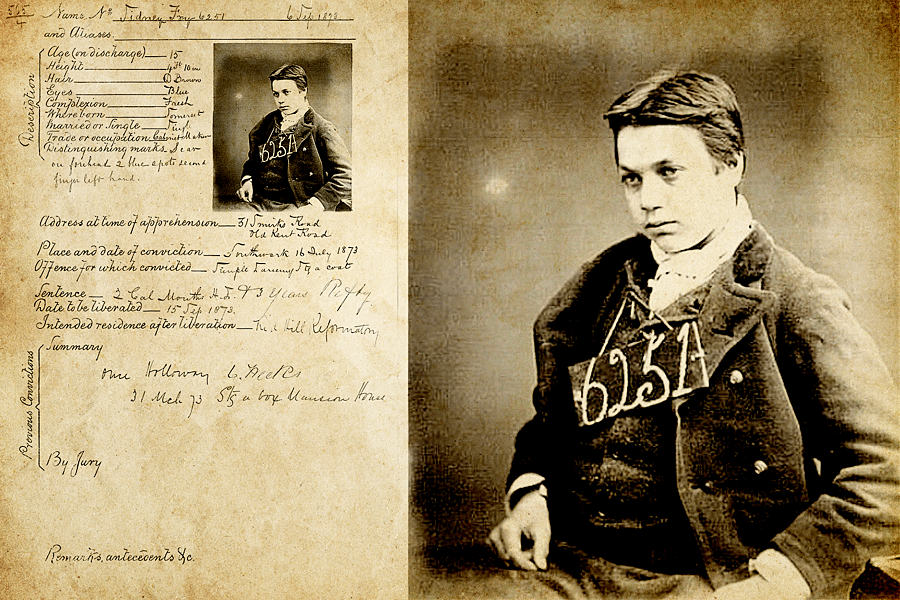 565
4
Name, No Sidney Fry 6251 6 Sep 1873
and Aliases.
Description
Age (on discharge) 15
Height 4ft 10in
Hair D Brown
Eyes Blue
Complexion Fresh
Where born Somerset
Married or Single Single
Trade or occupation Cabinet Maker
Distinguishing marks Scar
on forehead 2 blue spots second
finger left hand.
6251
Address at time of apprehension 31 Road
Old Kent Road
Place and date of conviction Southwark 16 July 1873
Offence for which convicted Simple Larceny Stg a coat
Sentence 2 Cal Months H.L. & 3 years Refty
Date to be liberated 15 Sep 1873.
Intended residence after liberation Hill Reformatory
Previous Convictions
Summary
one Holloway 6 Weeks
31 Mch 73 Stg a box Mansion House
By Jury
Remarks, antecedents &c.
6251A